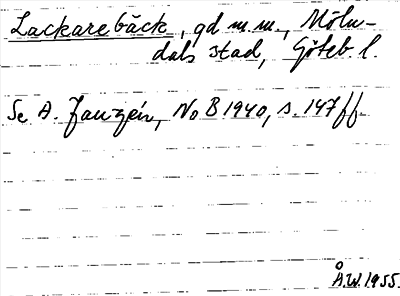 Lackarebäck, gd m.m., Möln-
dals stad, Göteb l.
Se A. Janzén, NoB 1940, s. 147 ff.
Å.W. 1955.